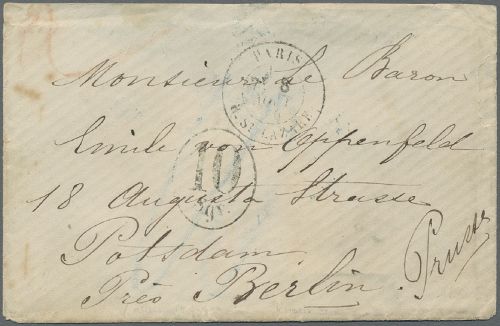 Monsieur le Baron
Emile von Oppenfeld
18 Augusta Strasse
Potsdam
Près Berlin.
Prusse
PARIS
8
R. ST LAZARE
10